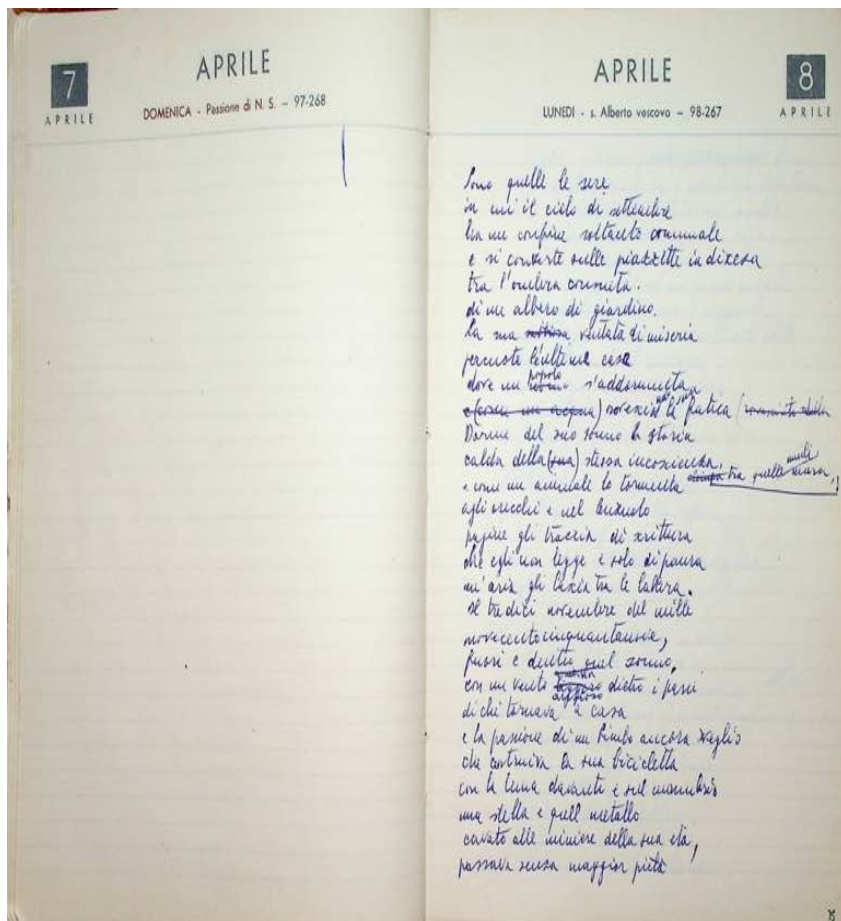 7
APRILE
APRILE
DOMENICA - Passione di N. S. - 97-268
APRILE
8
APRILE
LUNEDI - s. Alberto vescovo - 98-267
Sono quelle le sere
in cui il cielo di settembre
ha un confine soltanto comunale
e si converte sulle piazzette in discesa
tra l'ombra
di un albero di giardino.
La sua ventata di miseria
percuote l'ultima casa
dove un popolo s'addormenta
e (come un acqua) la fatica
Dorme del suo sonno la storia
calda della (sua) stessa incoscienza,
come un animale lo tormenta tra quelle
agli orecchi e nel
pagine gli traccia di scrittura
che egli non legge e solo di paura
un'aria gli lascia tra le labbra.
Il tredici novembre del mille
novecentocinquantasei,
fuori e dentro quel sonno,
con un vento dietro i passi
di chi tornava a casa
e la passione di un bimbo ancora sveglio
che costruiva la sua bicicletta
con la luna davanti e sul manubrio
una stella e quel metallo
cavato alle miniere della sua età,
passava senza maggior pietà